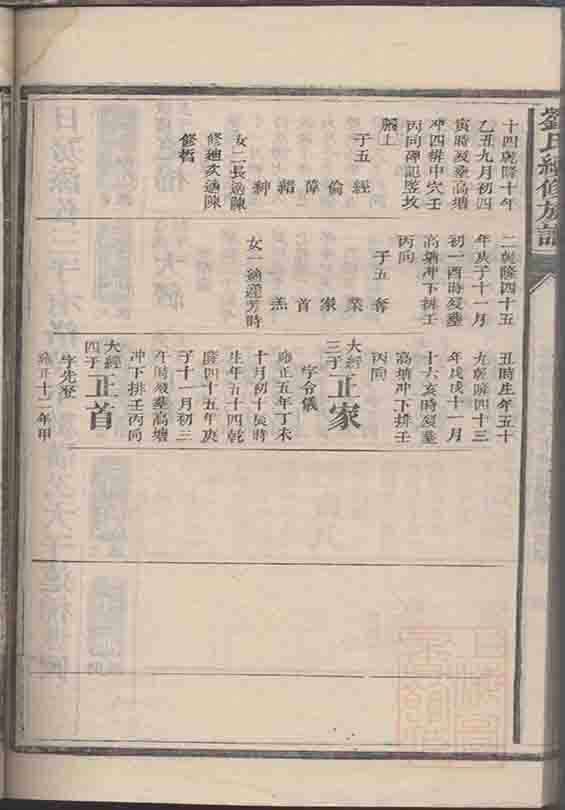 劉氏續修族譜
十四乾隆十年
乙丑九月初四
寅時歿葬高塘
冲四排中穴壬
丙向碑記墜坟
脚上
子五 經
倫
偉
紳
女二長適陳
修廸次適陳
修哲
二乾隆四十五
年庚子十一月
初一酉時歿葬
高塘冲下排壬
丙向
子五 奪
業
家
首
羔
女一適蓬芳時
丑時生年五十
九乾隆四十三
年戊戌十一月
十六亥時歿葬
高塘冲下排壬
丙向
大經三子 正家
字令儀
雍正五年丁未
十月初十寅時
生年五十四乾
隆四十五年庚
子十一月初三
午時歿葬高塘
冲下排壬丙向
大經四子 正首
字先登
雍正十二年甲